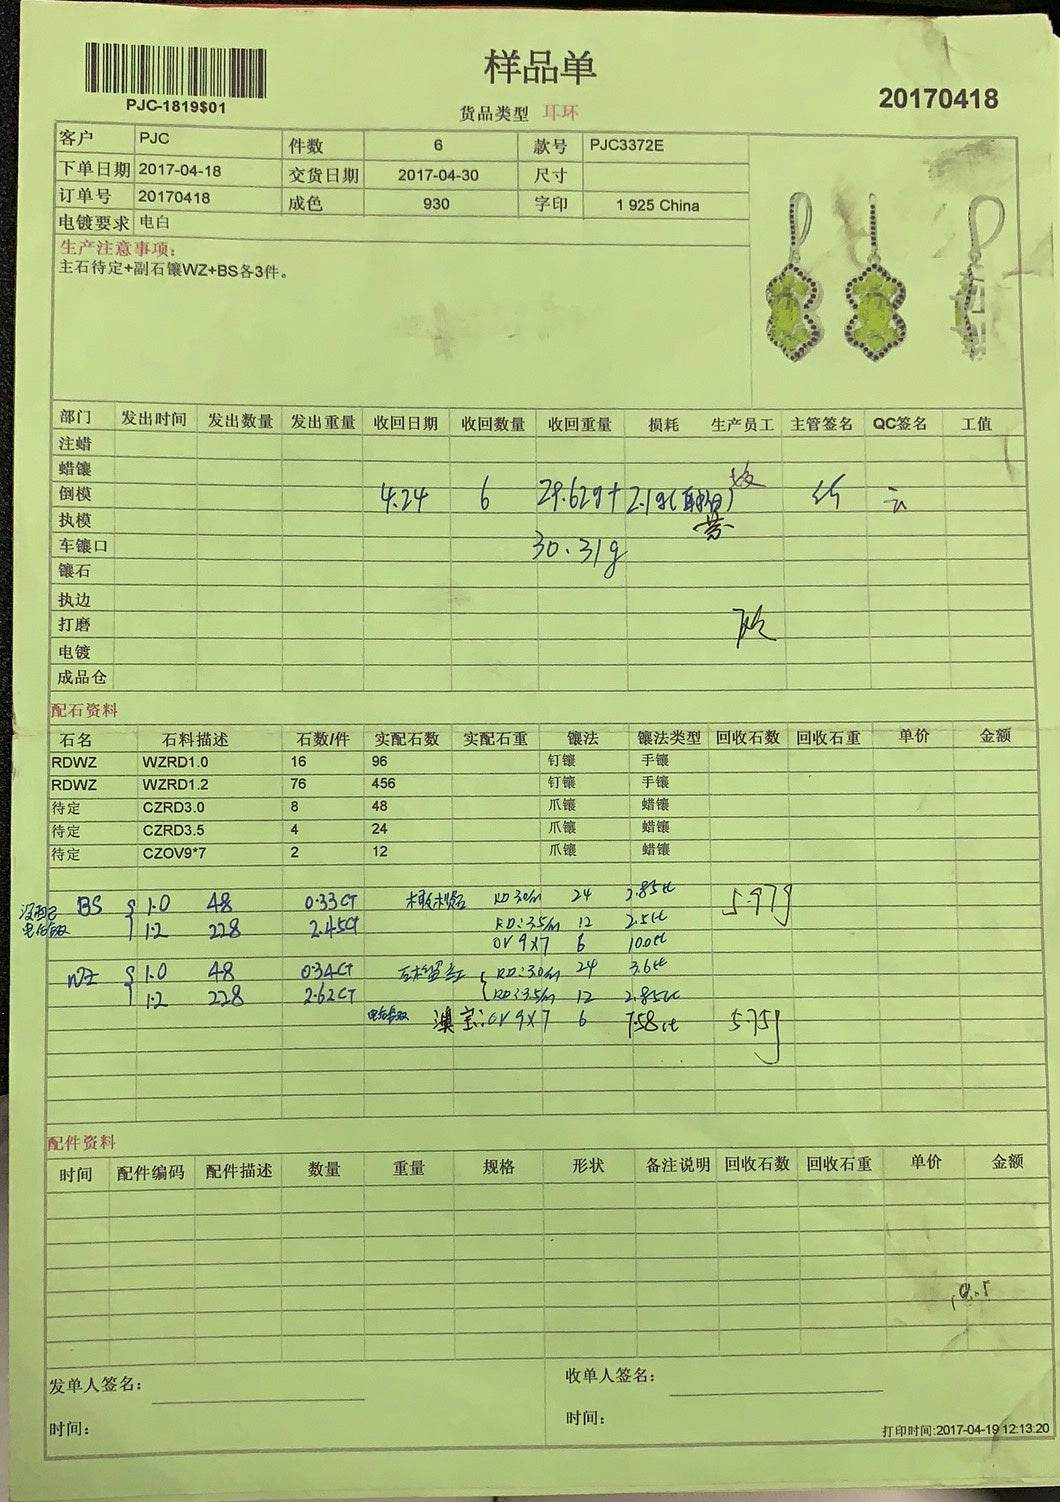 样品单
PJC-1819$01
货品类型 耳环
20170418
客户 PJC 件数 6 款号 PJC3372E
下单日期 2017-04-18 交货日期 2017-04-30 尺寸
订单号 20170418 成色 930 字印 1 925 China
电镀要求 电白
生产注意事项:
主石待定+副石镶WZ+BS各3件。
部门 发出时间 发出数量 发出重量 收回日期 收回数量 收回重量 损耗 生产员工 主管签名 QC签名 工值
注蜡
蜡镶
倒模 4.24 6 29.62g+2.1g
执模
车镶口 30.31g
镶石
执边
打磨
电镀
成品仓
配石资料
石名 石料描述 石数/件 实配石数 实配石重 镶法 镶法类型 回收石数 回收石重 单价 金额
RDWZ WZRD1.0 16 96 钉镶 手镶
RDWZ WZRD1.2 76 456 钉镶 手镶
待定 CZRD3.0 8 48 爪镶 蜡镶
待定 CZRD3.5 4 24 爪镶 蜡镶
待定 CZOV9*7 2 12 爪镶 蜡镶
BS 1.0 48 0.33CT RD 3.0/m 24 2.85ct 5.97g
1.2 228 2.45CT RD:3.5/m 12 2.5ct
OV 9X7 6 10.0ct
WZ 1.0 48 0.34CT RD:3.0/m 24 3.6ct
1.2 228 2.62CT RD:3.5/m 12 2.85ct
澳宝:OV 9X7 6 7.58ct 5.75g
配件资料
时间 配件编码 配件描述 数量 重量 规格 形状 备注说明 回收石数 回收石重 单价 金额
发单人签名: 收单人签名:
时间: 时间:
打印时间:2017-04-19 12:13:20